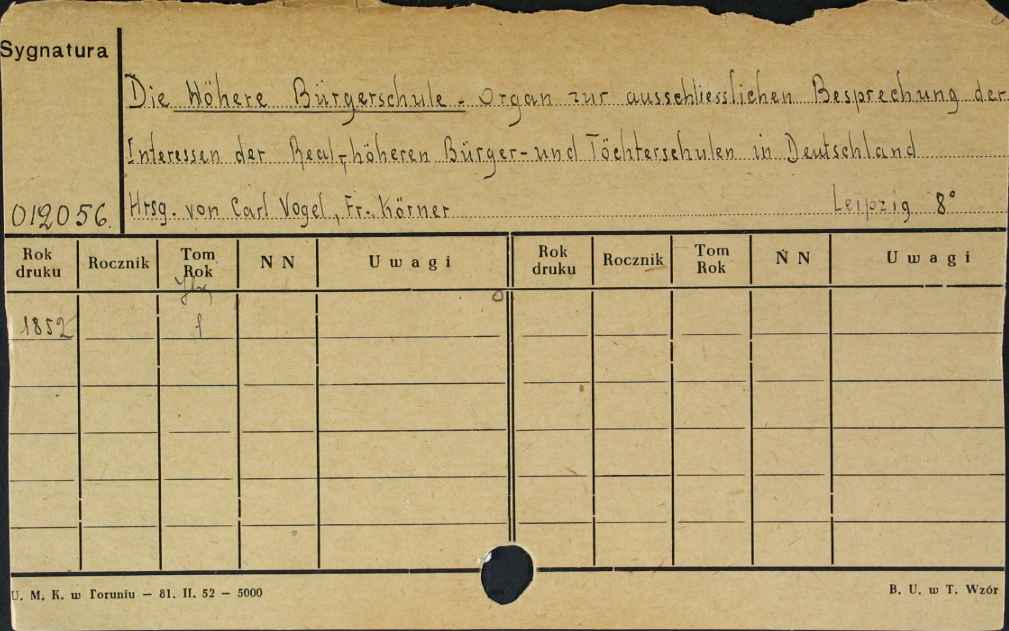 Sygnatura
Die Höhere Bürgerschule. Organ zur ausschliesslichen Besprechung der
Interessen der Real-, höheren Bürger- und Töchterschulen in Deutschland
012056. Hrsg. von Carl Vogel, Fr. Körner Leipzig 8°
Rok druku Rocznik Tom Rok N N Uwagi Rok druku Rocznik Tom Rok N N Uwagi
1852 1
U. M. K. w Toruniu — 81. II. 52 — 5000 B. U. w T. Wzór